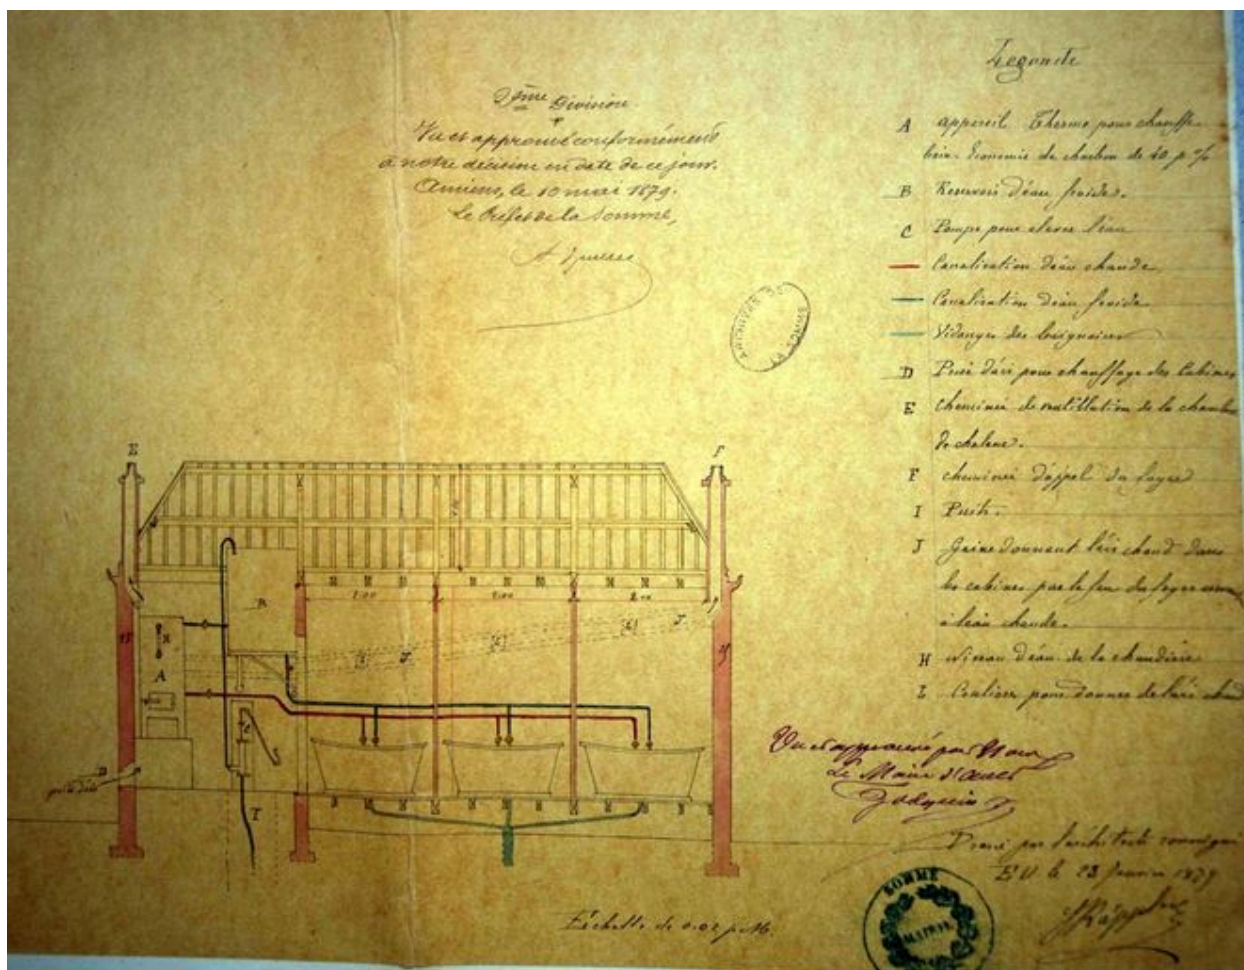 Légende
2ème Division.
Vu et approuvé conformément
à notre décision en date de ce jour.
Amiens, le 10 mai 1879.
Le Préfet de la Somme,
ARCHIVES DE
LA SOMME
A appareil Therme pour chauffe
bain. Economie de charbon de 40 p %
B Reservoir d'eau froide.
C Pompe pour elever l'eau
Canalisation d'eau chaude
Canalisation d'eau froide
Vidanges des baignoires
D Prise d'air pour chauffage des Cabines
E Cheminée de ventillation de la chambre
de chaleur.
F cheminée d'appel du foyer
I Puits.
J Gaine donnant l'air chaud dans
les cabines par le feu du foyer
à l'eau chaude.
H Niveau d'eau de la chaudière
L Coulisse pour donner de l'air chaud
E F
B
2.00 2.00 2.00
H
A
J J
C
D
I
Vu et approuvé par Nous
Le Maire
Dressé par l'architecte soussigné
le 23 Janvier 1879
Echelle de 0.02 p. M.
SOMME